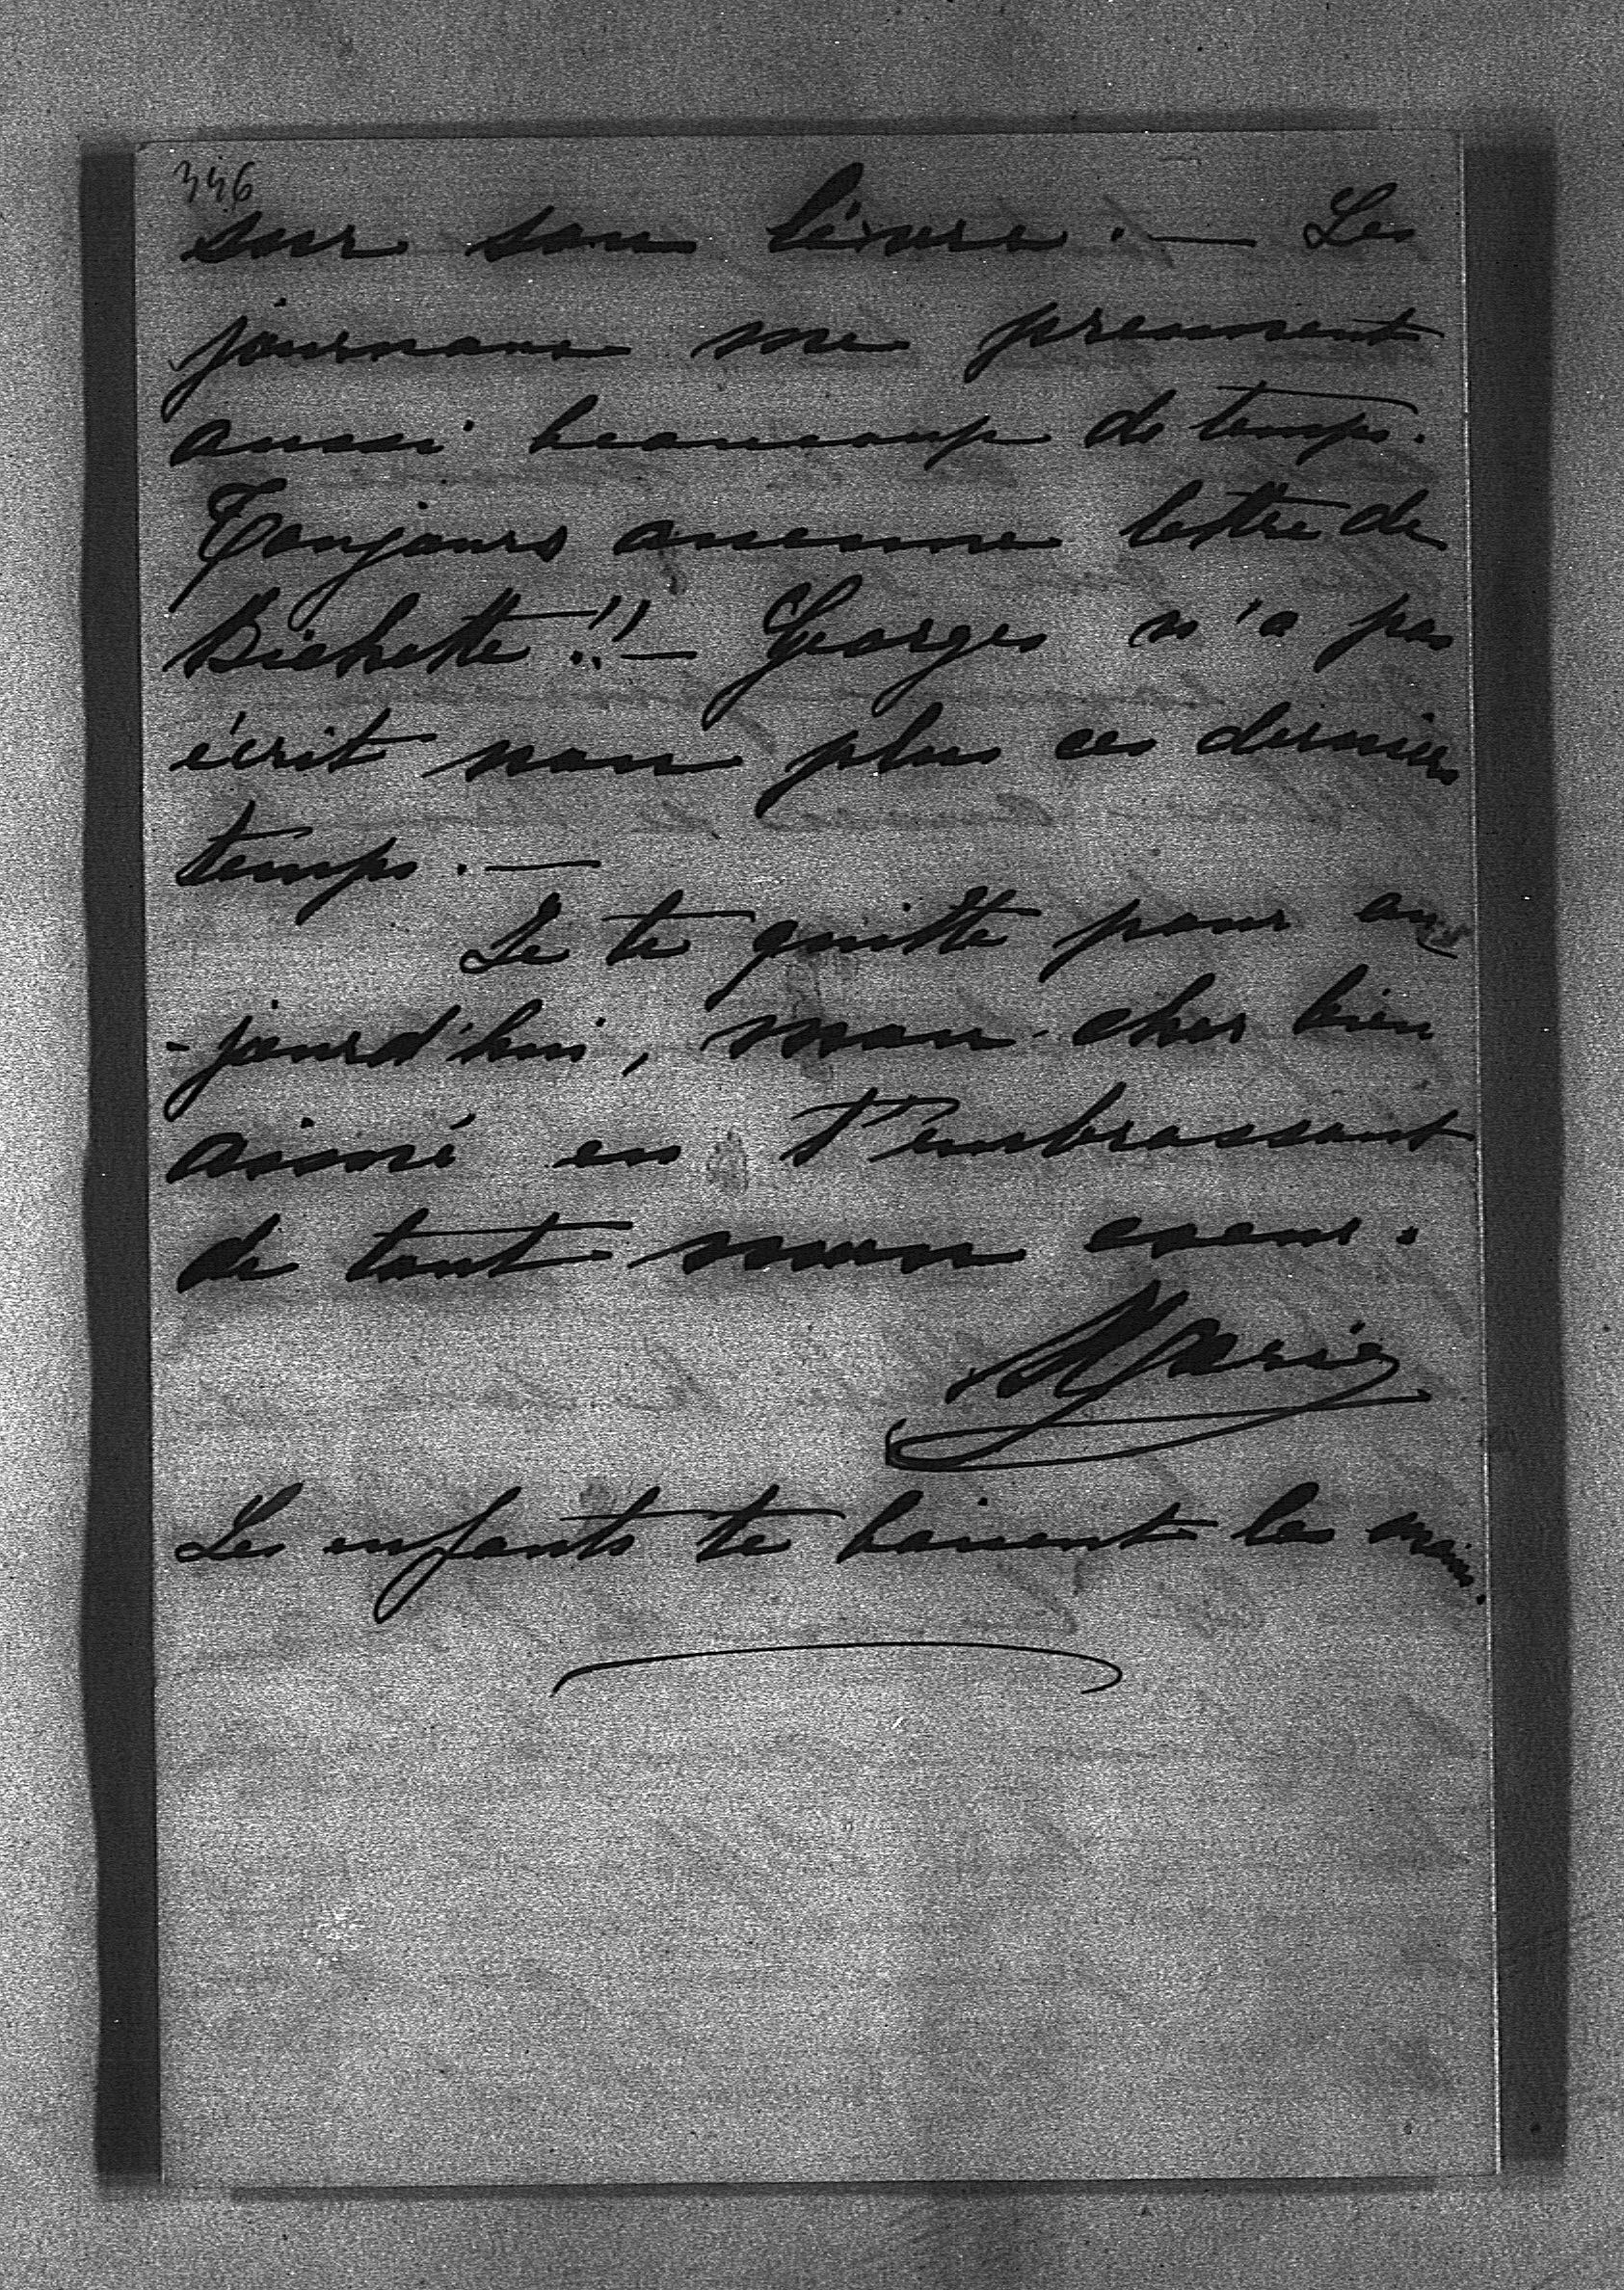 346
sur son livre. — Les
journaux me prennent
aussi beaucoup de temps.
Toujours aucune lettre de
Bichette!! — Georges n'a pas
écrit non plus ces derniers
temps. —
Je te quitte pour au
-jourd'hui, mon cher bien
aimé en t'embrassant
de tout mon coeur.
Marie
Les enfants te baisent les mains.